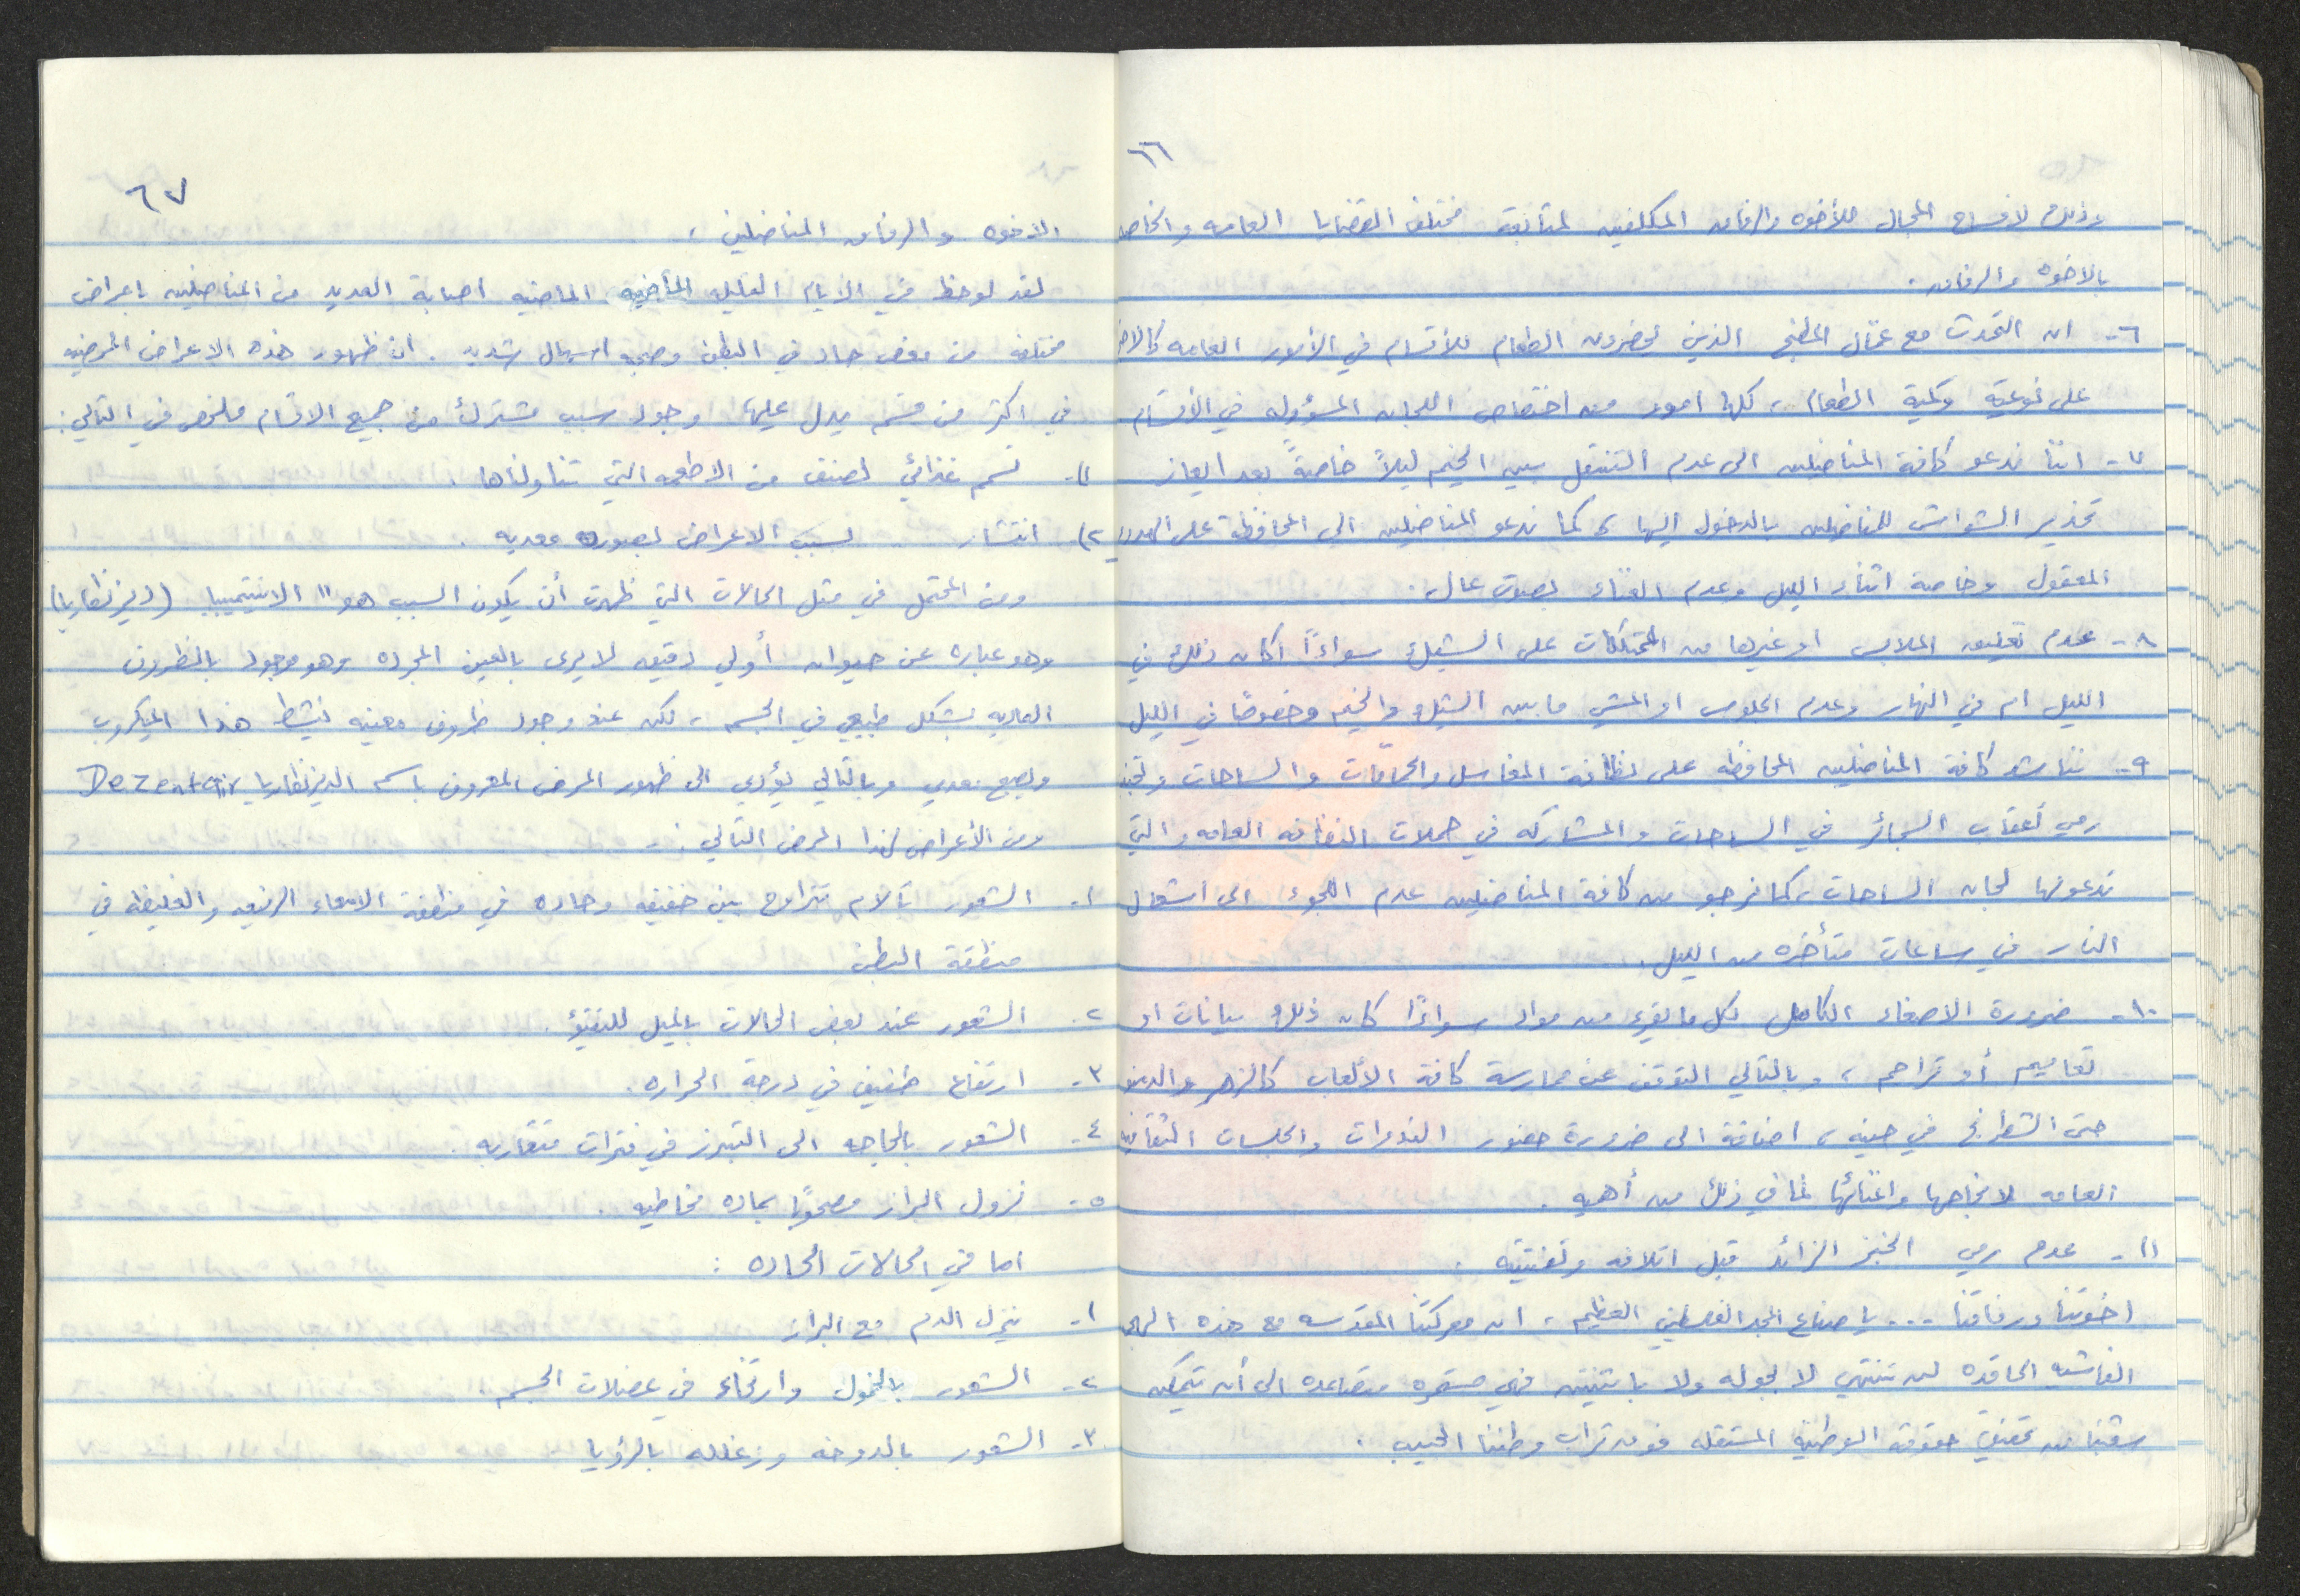 ٦٦
وذلك لافساح المجال للأخوه والرفاق المكلفين لمتابعة مختلف القضايا العامه والخاصه
بالاخوه والرفاق.
٦- ان التحدث مع عمّال المطبخ الذين يحضرون الطعام للأقسام في الأمور العامه كالاخ
على نوعية وكمية الطعام، كلها امور من اختصاص اللجان المسؤوله في الأقسام
٧- اننا ندعو كافة المناضلين الى عدم التنقل بين الخيم ليلاً خاصةً بعد ايعاز
تحذير الشواش للمناضلين بالدخول اليها، كما ندعو المناضلين الى المحافظة على الهدوء
المعقول وخاصة اثناء الليل وعدم الغناء بصوت عال.
٨- عدم تعليق الملابس او غيرها من الممتلكات على الشيك سواءاً أكان ذلك في
الليل ام في النهار وعدم الجلوس او المشي ما بين الشيك والخيم وخصوصًا في الليل
٩- نناشد كافة المناضلين المحافظه على نظافة المغاسل والحمامات والساحات وتجنب
رمي أعقاب السجائر في الساحات والمشاركه في حملات النظافه العامه والتي
تدعو لها لجان الساحات، كما نرجو من كافة المناضلين عدم اللجوء الى اشعال
النار في ساعات متأخره من الليل.
١٠- ضرورة الاصغاء الكامل لكل ما يقرء من مواد سواءًا كان ذلك بيانات او
تعاميم أو تراحم، وبالتالي التوقف عن ممارسة كافة الألعاب كالزهر والدمنو
حتى الشطرنج في حينه، اضافة الى ضرورة حضور الندوات والجلسات الثقافيه
العامه لانجاحها واغنائها لما في ذلك من أهميه.
١١- عدم رمي الخبز الزائد قبل اتلافه وتفتيته.
اخوتنا ورفاقنا ... يا صناع المجد الفلسطيني العظيم، ان معركتنا المقدسه مع هذه الهجمه
الفاشيه الحاقده لن تنتهي لا بجوله ولا باثنتين فهي مستمره متصاعده الى أن يتمكن
شعبنا من تحقيق حقوقه الوطنيه المستقله فوق تراب وطننا الحبيب.
٦٧
الاخوه والرفاق المناضلين،
لقد لوحظ في الايام القليله الماضيه الماضيه اصابة العديد من المناضلين باعراض
مختلفه من مغص حاد في البطن وصحبه اسهال شديد. ان ظهور هذه الاعراض المرضيه
في اكثر من قسم يدل عليها وجود سبب مشترك من جميع الاقسام ملخص في التالي:
١)- تسمم غذائي لصنف من الاطعمه التي تناولناها.
٢) انتشار لسبب الاعراض بصوره معديه.
ومن المحتمل في مثل الحالات التي ظهرت أن يكون السبب هو" الانتيميبا (ديزنطاريا)
وهو عباره عن حيوان أولي دقيق لا يرى بالعين المجرده وهو موجود بالظروف
العاديه بشكل طبيعي في الجسم، لكن عند وجود ظروف معينه ينشط هذا الميكروب
ويصبح معدي وبالتالي يؤدي الى ظهور المرض المعروف باسم الديزنطاريا Dezentair
ومن الأعراض لهذا المرض التالي :-
١- الشعور بآلام تتراوح بين خفيفه وحاده في منطقة الامعاء الرفيعه والغليظه في
منطقة البطن
٢- الشعور عند بعض الحالات بالميل للتقيؤ.
٣- ارتفاع طفيف في درجة الحراره.
٤- الشعور بالحاجه الى التبرز في فترات متقاربه.
٥- نزول البراز مصحوبًا بماده مخاطيه.
اما في الحالات الحاده :
١- نيزل الدم مع البراز
٢- الشعور بالخمول وارتخاء في عضلات الجسم
٣- الشعور بالدوخه وزغلله بالرؤيا